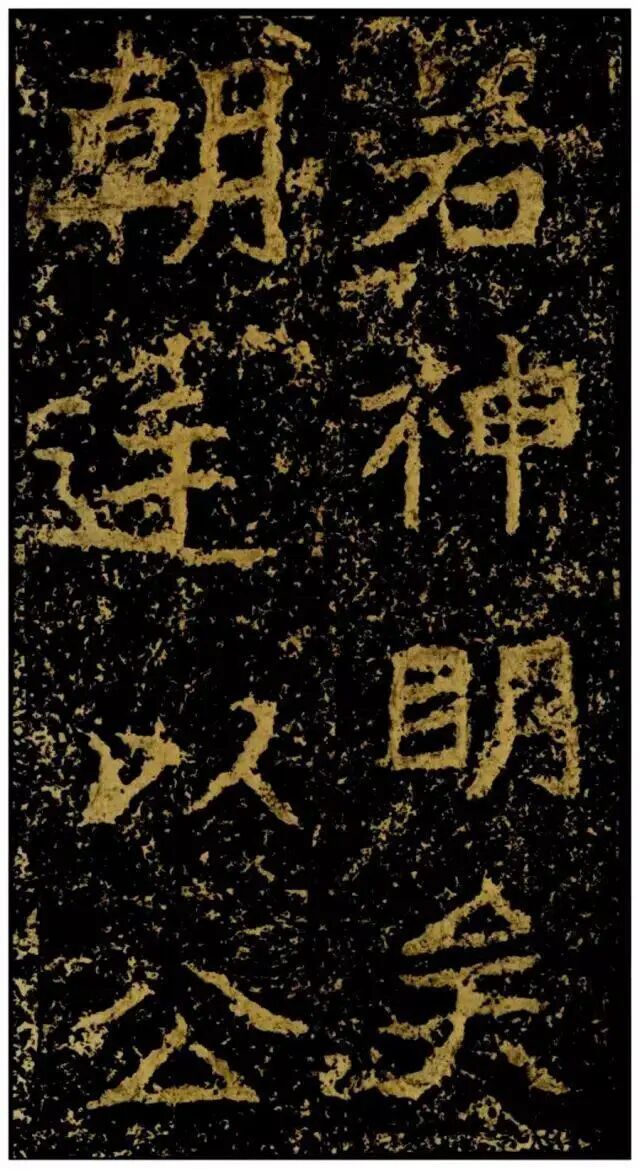 若神明矣
朝廷以公